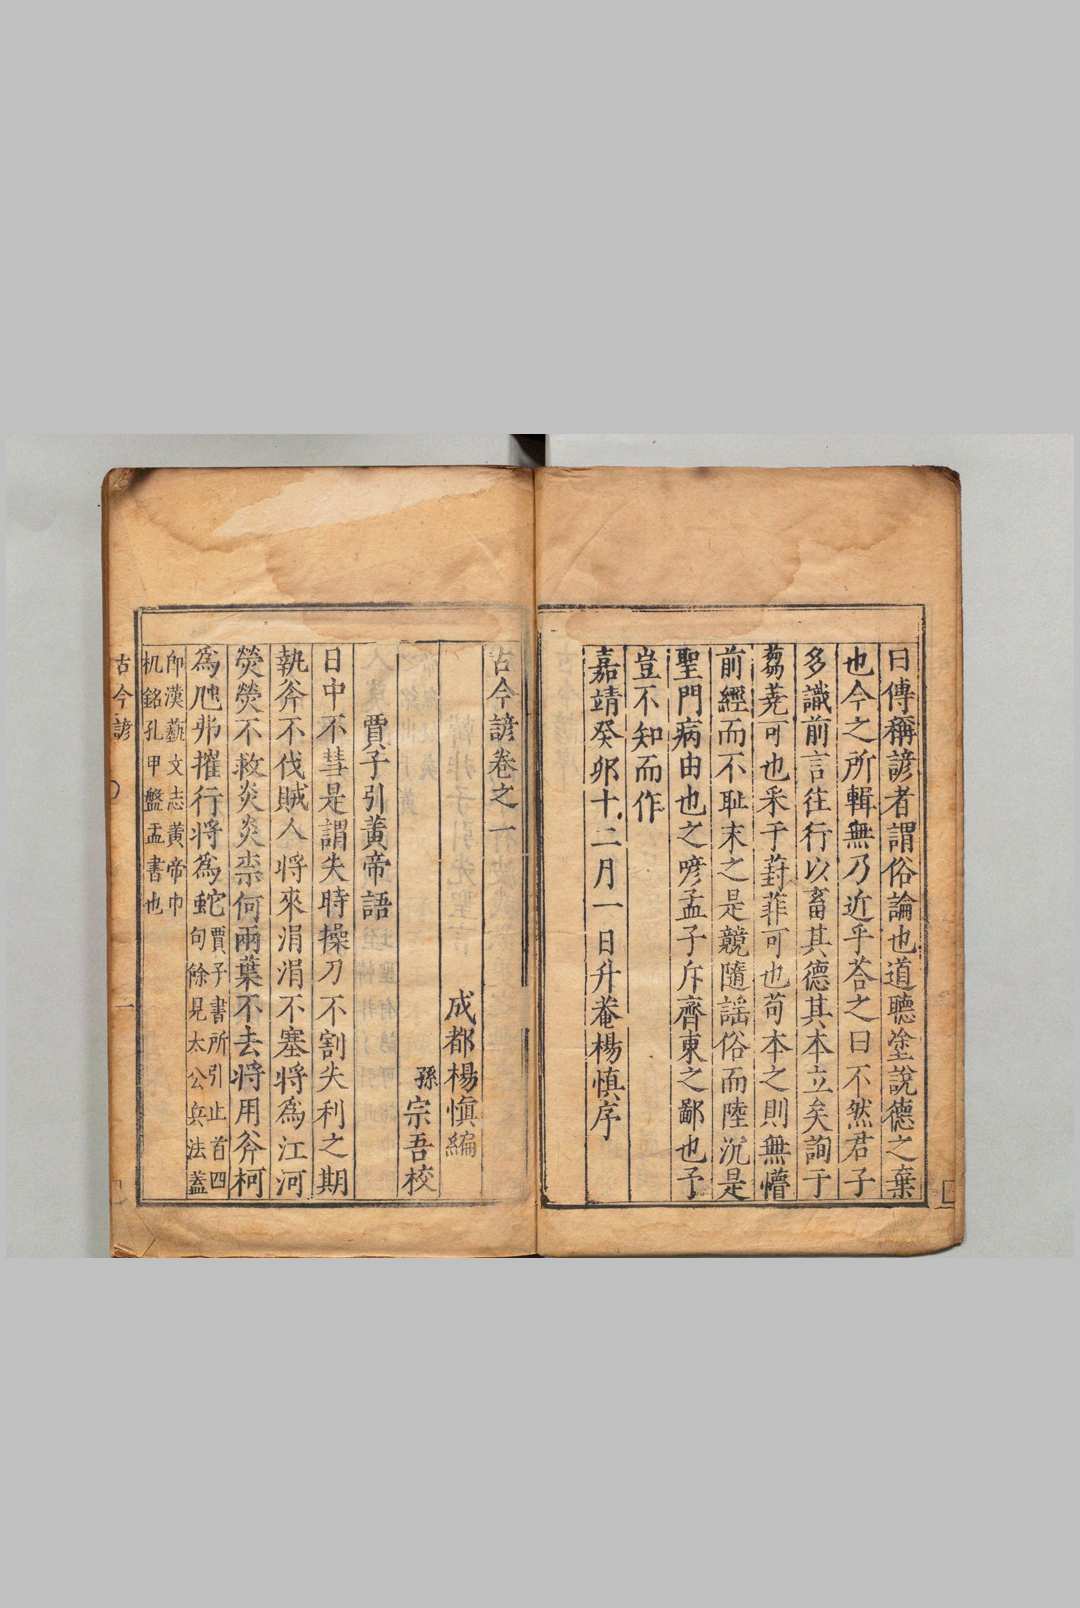 曰傳稱諺者謂俗論也道聽塗說德之棄
也今之所輯無乃近乎荅之曰不然君子
多識前言往行以畜其德其本立矣詢于
芻蕘可也采于葑菲可也苟本之則無懵
前經而不耻末之是競隨謡俗而陸沉是
聖門病由也之喭孟子斥齊東之鄙也予
豈不知而作
嘉靖癸卯十二月一日升菴楊慎序
古今諺卷之一
成都楊慎編
孫宗吾校
賈子引黃帝語
日中不彗是謂失時操刀不割失利之期
執斧不伐賊人將來涓涓不塞將爲江河
熒熒不救炎炎柰何兩葉不去將用斧柯
爲虺弗摧行將爲蛇
賈子書所引止首四
句餘見太公兵法蓋
卽漢藝文志黃帝巾
机銘孔甲盤盂書也
古今諺
一